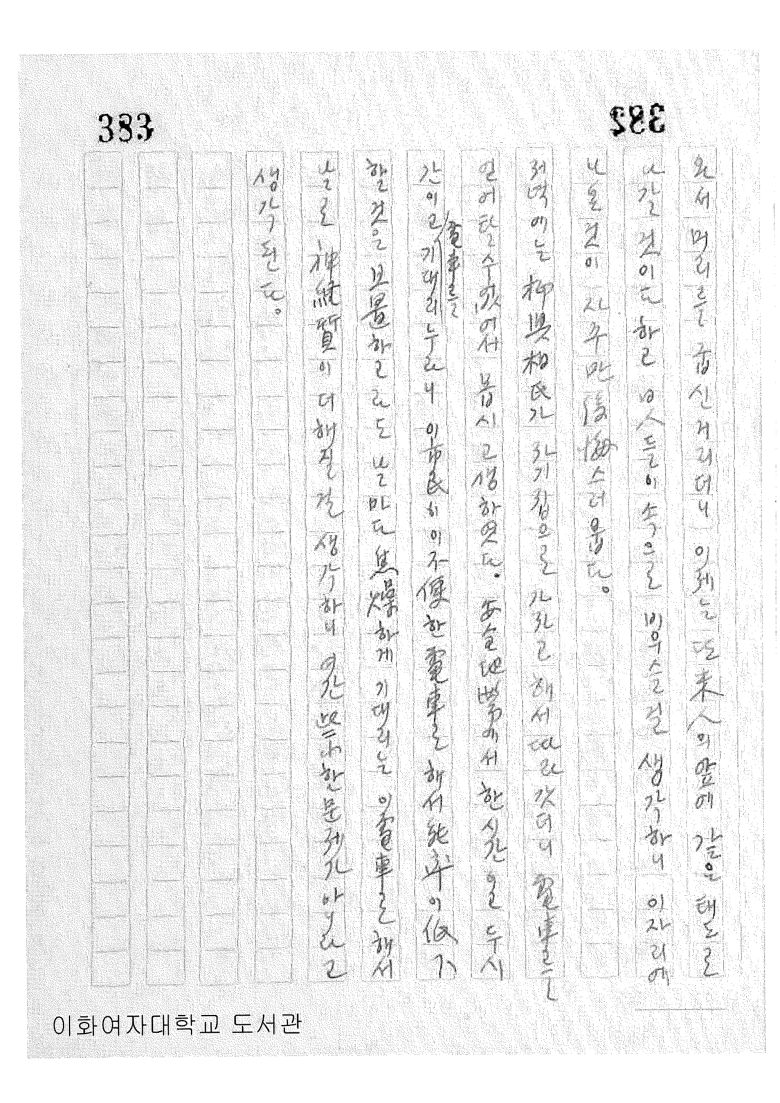 383
382
와서 머리를 굽신거리더니 이제는 또 米人의 앞에 같은 태도로
나갈 것이다 하고  日人들이 속으로 비우슬 걸 생각하니 이 자리에
나온 것이 자주만 後悔스러웁다.
저녁에는 柳 氏가 자기집으로 가자고 해서 따라갓더니 電車를
얻어탈 수 없어서 몹시 고생하엿다. 安全地帶에서 한 시간을 두 시
간이고 電車를 기대리누라니 이 市民이 이 不便한 電車로 해서 能率이 低下
할 것은 且置하고라도 날마다 焦燥하게 기대리는 이 電車로 해서
날로 神經質이 더해질 걸 생각하니 여간 한 문제가 아니라고
생각된다.
이화여자대학교 도서관